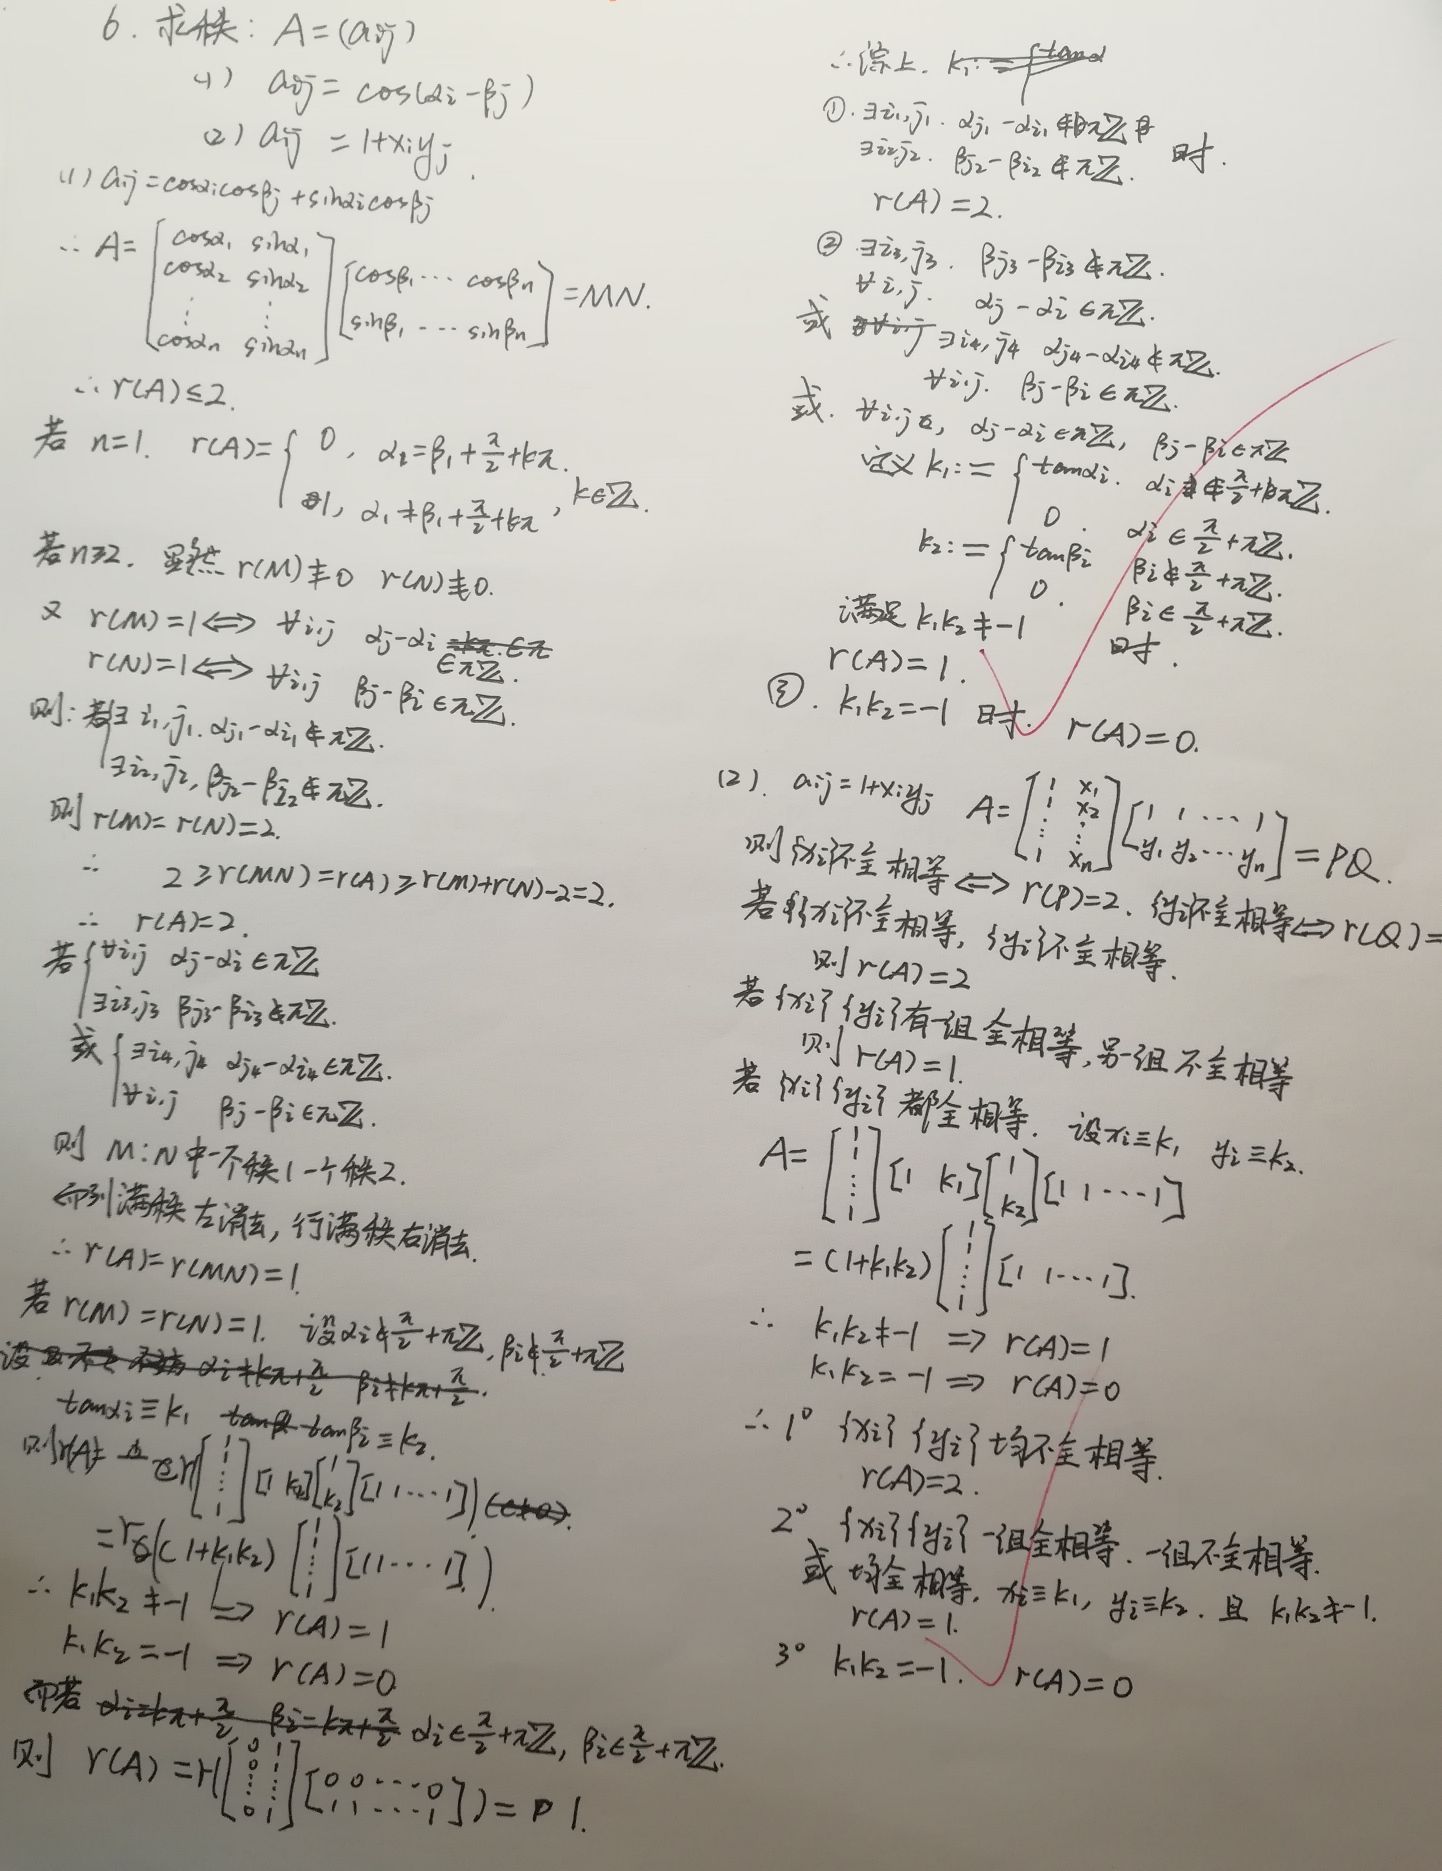 6. 求秩: A=(aij)
(1) aij = cos(αi-βj)
(2) aij = 1+xiyj.
(1) aij=cosαicosβj+sinαicosβj
∴ A= [cosα1 sinα1; cosα2 sinα2; ⋮ ⋮; cosαn sinαn] [cosβ1 ··· cosβn; sinβ1 ··· sinβn] =MN.
∴ r(A)≤2.
若 n=1. r(A)= { 0, α1=β1+π/2+kπ.
1, α1≠β1+π/2+kπ, k∈ℤ.
若n≥2. 显然 r(M)≠0 r(N)≠0.
又 r(M)=1⟺ ∀i,j αj-αi ∈πℤ.
r(N)=1⟺ ∀i,j βj-βi∈πℤ.
则: 若{∃ i1,j1. αj1-αi1∉πℤ.
∃i2,j2, βj2-βi2∉πℤ.
则 r(M)=r(N)=2.
∴ 2≥r(MN)=r(A)≥r(M)+r(N)-2=2.
∴ r(A)=2.
若{∀i,j αj-αi∈πℤ
∃i3,j3 βj3-βi3∉πℤ.
或{∃i4,j4 αj4-αi4∈πℤ.
∀i,j βj-βi∈πℤ.
则 M:N中一个秩1一个秩2.
而列满秩左消去, 行满秩右消去.
∴ r(A)=r(MN)=1.
若 r(M)=r(N)=1. 设αi∉π/2+πℤ, βi∉π/2+πℤ
tanαi≡k1 tanβi≡k2.
则r(A)= r([1; 1; ⋮; 1] [1 k1] [1; k2] [1 1 ··· 1])
=r((1+k1k2) [1; 1; ⋮; 1] [1 1 ··· 1]).
∴ k1k2≠-1 ⇒ r(A)=1
k1k2=-1 ⇒ r(A)=0
而若 αi∈π/2+πℤ, βi∈π/2+πℤ.
则 r(A)=r([0 1; 0 1; ⋮ ⋮; 0 1] [0 0 ··· 0; 1 1 ··· 1])= 1.
∴综上.
①. ∃i1,j1. αj1-αi1∉πℤ
∃i2,j2. βj2-βi2∉πℤ. 时.
r(A)=2.
② ∃i3,j3. βj3-βi3∉πℤ.
∀i,j. αj-αi∈πℤ.
或 ∃i4,j4 αj4-αi4∉πℤ.
∀i,j. βj-βi∈πℤ.
或. ∀i,j, αj-αi∈πℤ, βj-βi∈πℤ
定义 k1:= { tanαi. αi∉π/2+πℤ.
0. αi∈π/2+πℤ.
k2:= { tanβi βi∉π/2+πℤ.
0. βi∈π/2+πℤ.
满足 k1k2≠-1 时.
r(A)=1.
③. k1k2=-1 时. r(A)=0.
(2). aij=1+xiyj A= [1 x1; 1 x2; ⋮ ⋮; 1 xn] [1 1 ··· 1; y1 y2 ··· yn] =PQ.
则{xi}不全相等⟺ r(P)=2. {yi}不全相等⟺r(Q)=
若{xi}不全相等, {yi}不全相等.
则 r(A)=2
若{xi}{yi}有一组全相等, 另一组不全相等
则 r(A)=1.
若{xi}{yi}都全相等. 设xi≡k1 yi≡k2.
A= [1; 1; ⋮; 1] [1 k1] [1; k2] [1 1 ··· 1]
=(1+k1k2) [1; 1; ⋮; 1] [1 1 ··· 1].
∴ k1k2≠-1 ⇒ r(A)=1
k1k2=-1 ⇒ r(A)=0
∴ 1° {xi}{yi}均不全相等.
r(A)=2.
2° {xi}{yi}一组全相等. 一组不全相等.
或均全相等. xi≡k1, yi≡k2. 且 k1k2≠-1.
r(A)=1.
3° k1k2=-1. r(A)=0